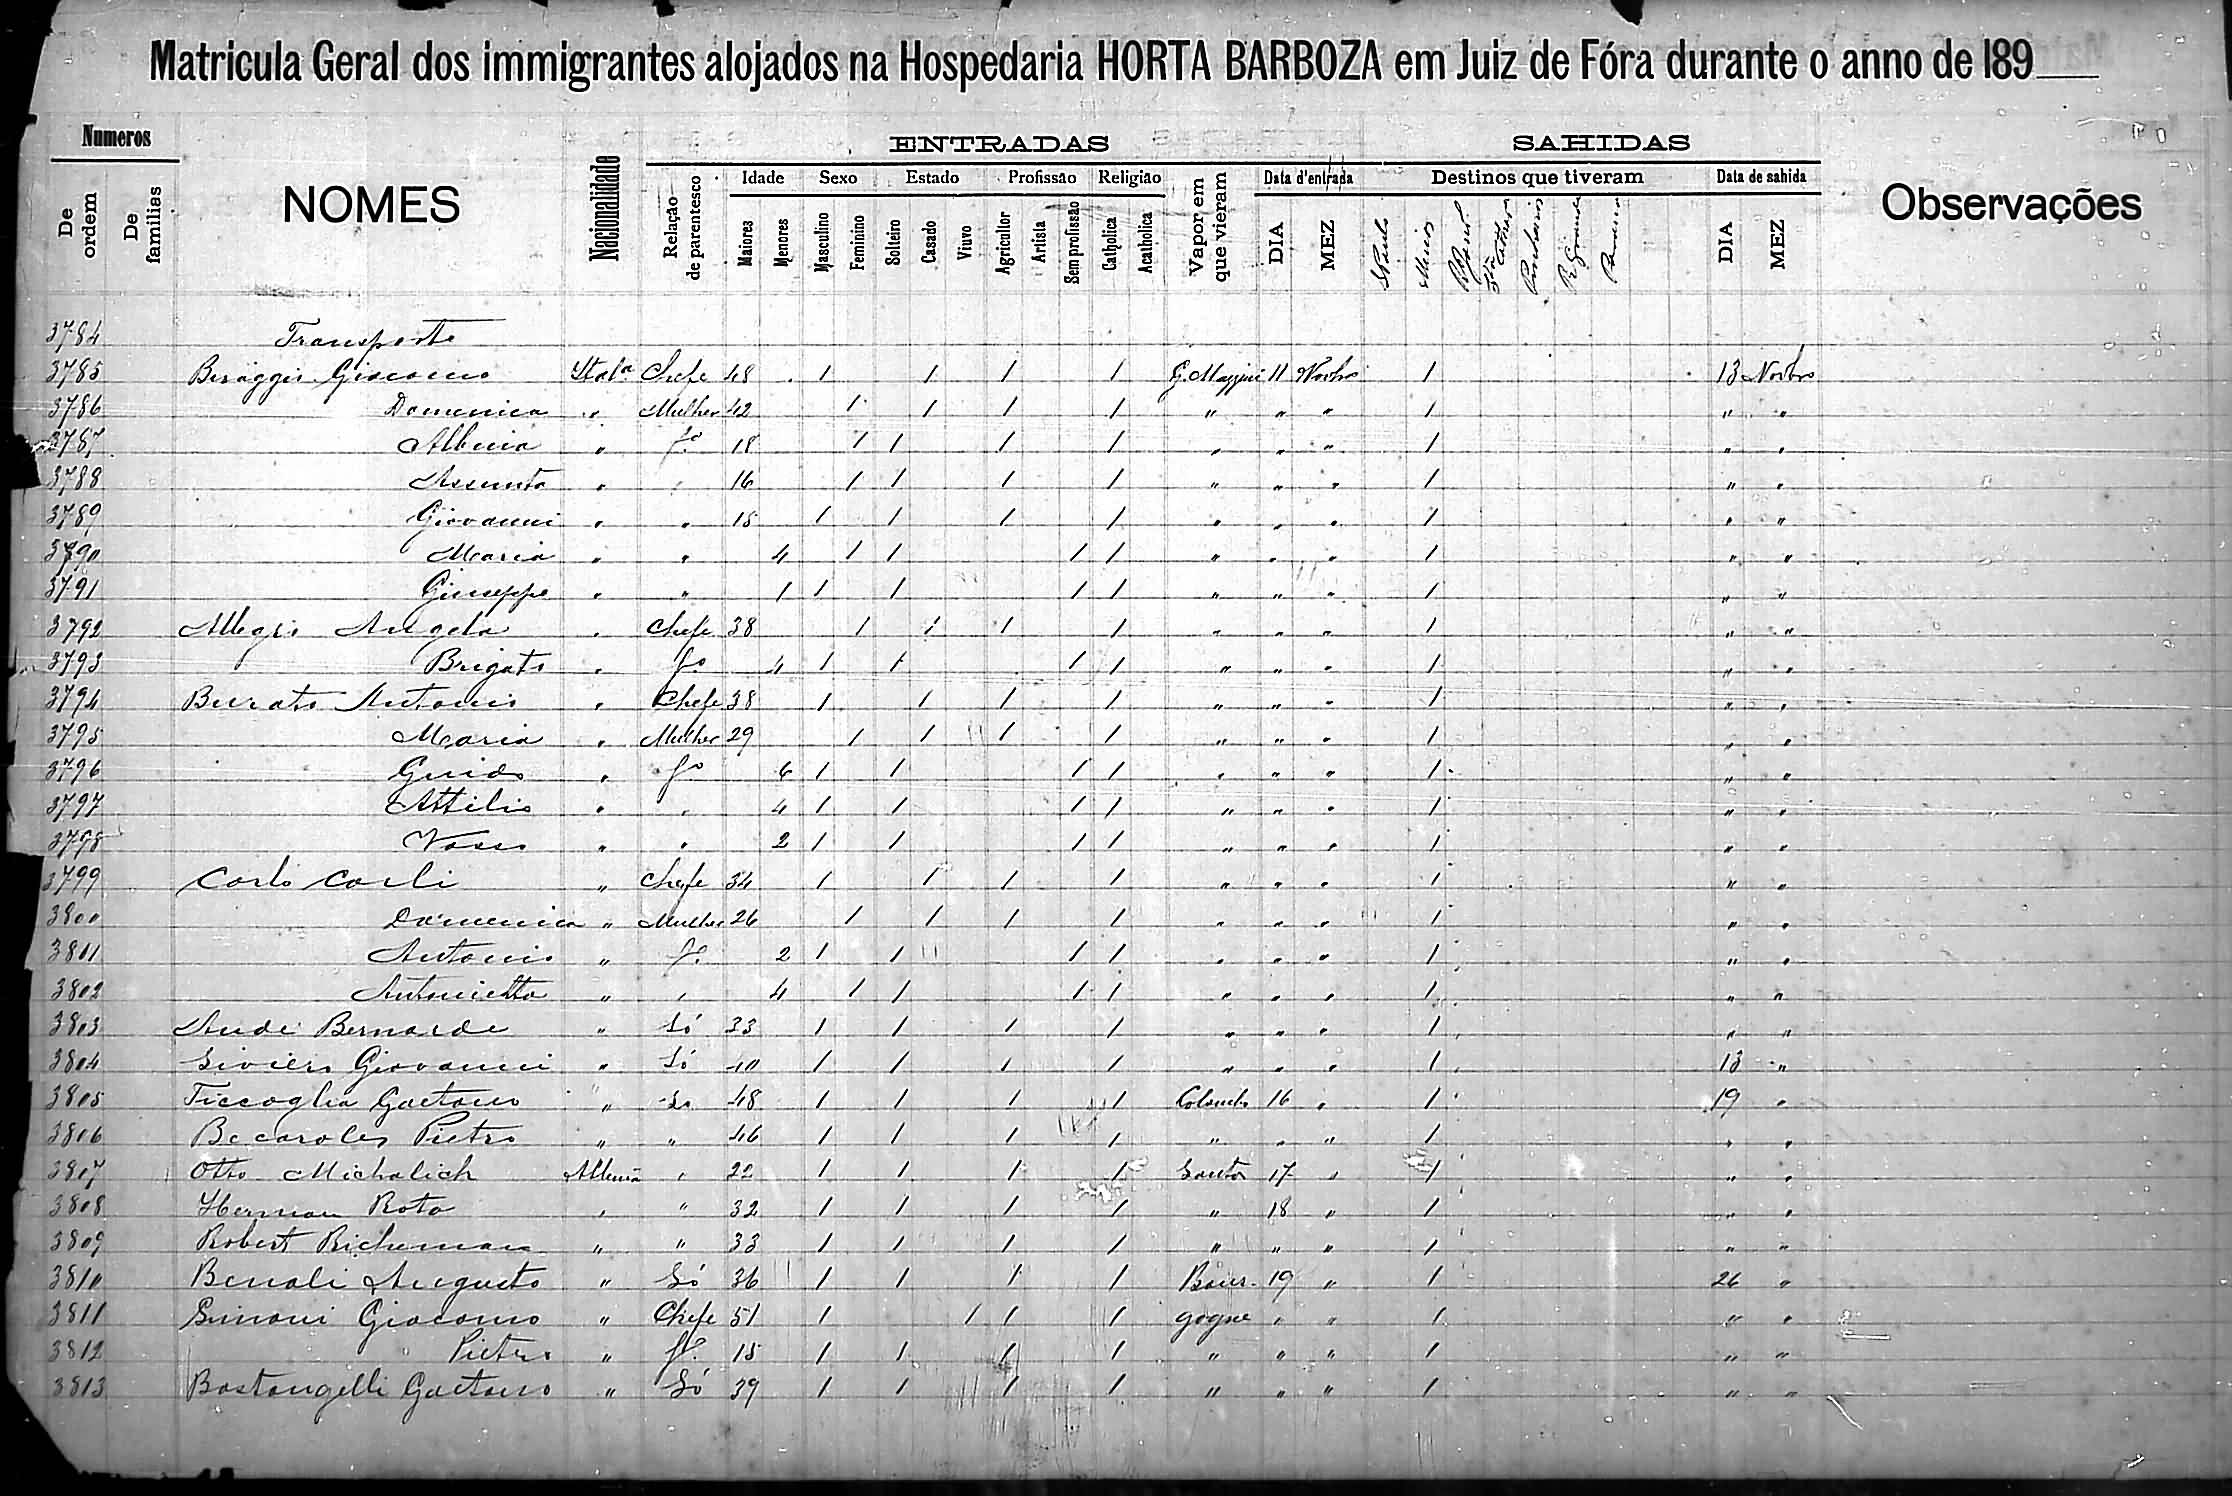 Matricula Geral dos immigrantes alojados na Hospedaria HORTA BARBOZA em Juiz de Fóra durante o anno de 189
Numeros ENTRADAS SAHIDAS
De ordem De familias NOMES Nacionalidade Relação de parentesco Idade Sexo Estado Profissão Religião Vapor em que vieram Data d'entrada Destinos que tiveram Data de sahida Observações
Maiores Menores Masculino Feminino Solteiro Casado Viuvo Agricultor Artista Sem profissão Catholica Acatholica DIA MEZ S Paulo Minas DIA MEZ
3784 Transporte
3785 Giacomo Chefe 48 1 1 1 1 G. Mazzini 11 Novbro 1 13 Novbro
3786 Domenica " Mulher 42 1 1 1 1 " " " 1 " "
3787 Albina " fo 18 1 1 1 1 " " " 1 " "
3788 Assunta " " 16 1 1 1 1 " " " 1 " "
3789 Giovanni " " 15 1 1 1 1 " " " 1 " "
3790 Maria " " 4 1 1 1 1 " " " 1 " "
3791 Giuseppe " " 1 1 1 1 1 " " " 1 " "
3792 Allegri Angela " Chefe 38 1 1 1 1 " " " 1 " "
3793 Brigato " fo 4 1 1 1 1 " " " 1 " "
3794 Burato Antonio " Chefe 38 1 1 1 1 " " " 1 " "
3795 Maria " Mulher 29 1 1 1 1 " " " 1 " "
3796 Guido " fo 6 1 1 1 1 " " " 1 " "
3797 Attilio " " 4 1 1 1 1 " " " 1 " "
3798 " " 2 1 1 1 1 " " " 1 " "
3799 Carlo Carli " Chefe 34 1 1 1 1 " " " 1 " "
3800 Domenica " Mulher 26 1 1 1 1 " " " 1 " "
3801 Antonio " fo 2 1 1 1 1 " " " 1 " "
3802 Antonietta " " 4 1 1 1 1 " " " 1 " "
3803 Bernarde " Só 33 1 1 1 1 " " " 1 " "
3804 Siviero Giovanni " Só 40 1 1 1 1 " " " 1 13 "
3805 Ficcoglia Gaetano " So 48 1 1 1 1 16 " 1 19 "
3806 Pietro " " 46 1 1 1 1 " " " 1 " "
3807 Otto Michalich " 22 1 1 1 1 Santos 17 " 1 " "
3808 Herman Roto " " 32 1 1 1 1 " 18 " 1 " "
3809 Robert " " 33 1 1 1 1 " " " 1 " "
3810 Benali Augusto " Só 36 1 1 1 1 Bour- 19 " 1 26 "
3811 Simoni Giacomo " Chefe 51 1 1 1 1 gogne " " 1 " "
3812 Pietro " fo 15 1 1 1 1 " " " 1 " "
3813 Bastangelli Gaetano " Só 39 1 1 1 1 " " " 1 " "